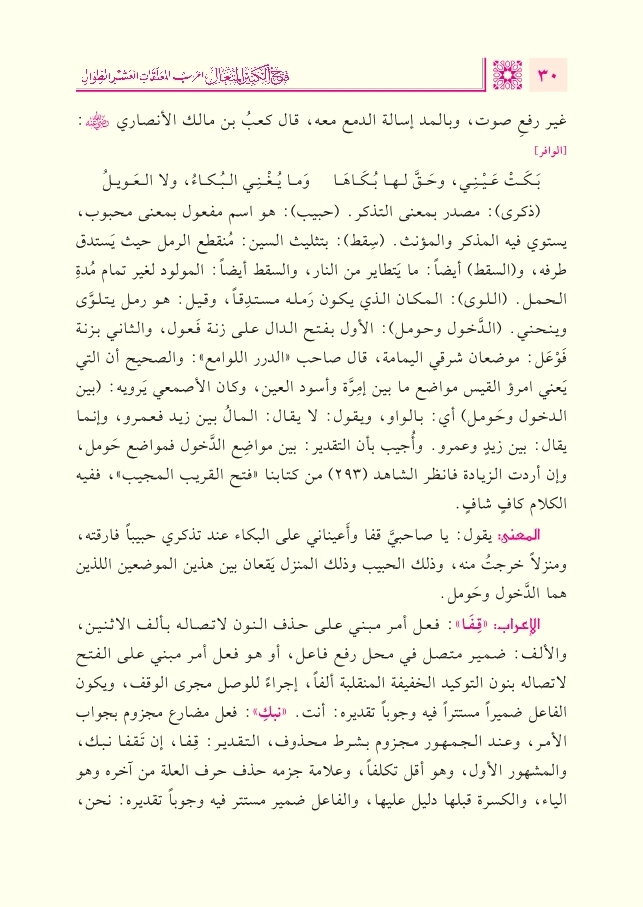 ٣٠ فتح الكبير المتعال إعراب المعلقات العشر الطوال
غير رفعِ صوت، وبالمد إسالة الدمع معه، قال كعبُ بن مالك الأنصاري ﵁ :
[الوافر]
بَكَتْ عَيْنِي، وحَقَّ لها بُكَاهَا وَما يُغْنِي البُكاءُ، ولا العَوِيلُ
(ذكرى): مصدر بمعنى التذكر. (حبيب): هو اسم مفعول بمعنى محبوب،
يستوي فيه المذكر والمؤنث. (سِقط): بتثليث السين: مُنقطع الرمل حيث يَستدق
طرفه، و(السقط) أيضاً: ما يَتطاير من النار، والسقط أيضاً: المولود لغير تمام مُدةِ
الحمل. (اللوى): المكان الذي يكون رَمله مستدِقاً، وقيل: هو رمل يتلوَّى
وينحني. (الدَّخول وحومل): الأول بفتح الدال على زنة فَعول، والثاني بزنة
فَوْعَل: موضعان شرقي اليمامة، قال صاحب «الدرر اللوامع»: والصحيح أن التي
يَعني امرؤ القيس مواضع ما بين إمِرَّة وأسود العين، وكان الأصمعي يَرويه: (بين
الدخول وحَومل) أي: بالواو، ويقول: لا يقال: المالُ بين زيد فعمرو، وإنما
يقال: بين زيدٍ وعمرو. وأُجيب بأن التقدير: بين مواضِع الدَّخول فمواضع حَومل،
وإن أردت الزيادة فانظر الشاهد (٢٩٣) من كتابنا «فتح القريب المجيب»، ففيه
الكلام كافٍ شافٍ.
المعنى: يقول: يا صاحبيَّ قفا وأَعيناني على البكاء عند تذكري حبيباً فارقته،
ومنزلاً خرجتُ منه، وذلك الحبيب وذلك المنزل يَقعان بين هذين الموضعين اللذين
هما الدَّخول وحَومل.
الإعراب: «قِفَا»: فعل أمر مبني على حذف النون لاتصاله بألف الاثنين،
والألف: ضمير متصل في محل رفع فاعل، أو هو فعل أمر مبني على الفتح
لاتصاله بنون التوكيد الخفيفة المنقلبة ألفاً، إجراءً للوصل مجرى الوقف، ويكون
الفاعل ضميراً مستتراً فيه وجوباً تقديره: أنت. «نبكِ»: فعل مضارع مجزوم بجواب
الأمر، وعند الجمهور مجزوم بشرط محذوف، التقدير: قِفا، إن تَقفا نبك،
والمشهور الأول، وهو أقل تكلفاً، وعلامة جزمه حذف حرف العلة من آخره وهو
الياء، والكسرة قبلها دليل عليها، والفاعل ضمير مستتر فيه وجوباً تقديره: نحن،